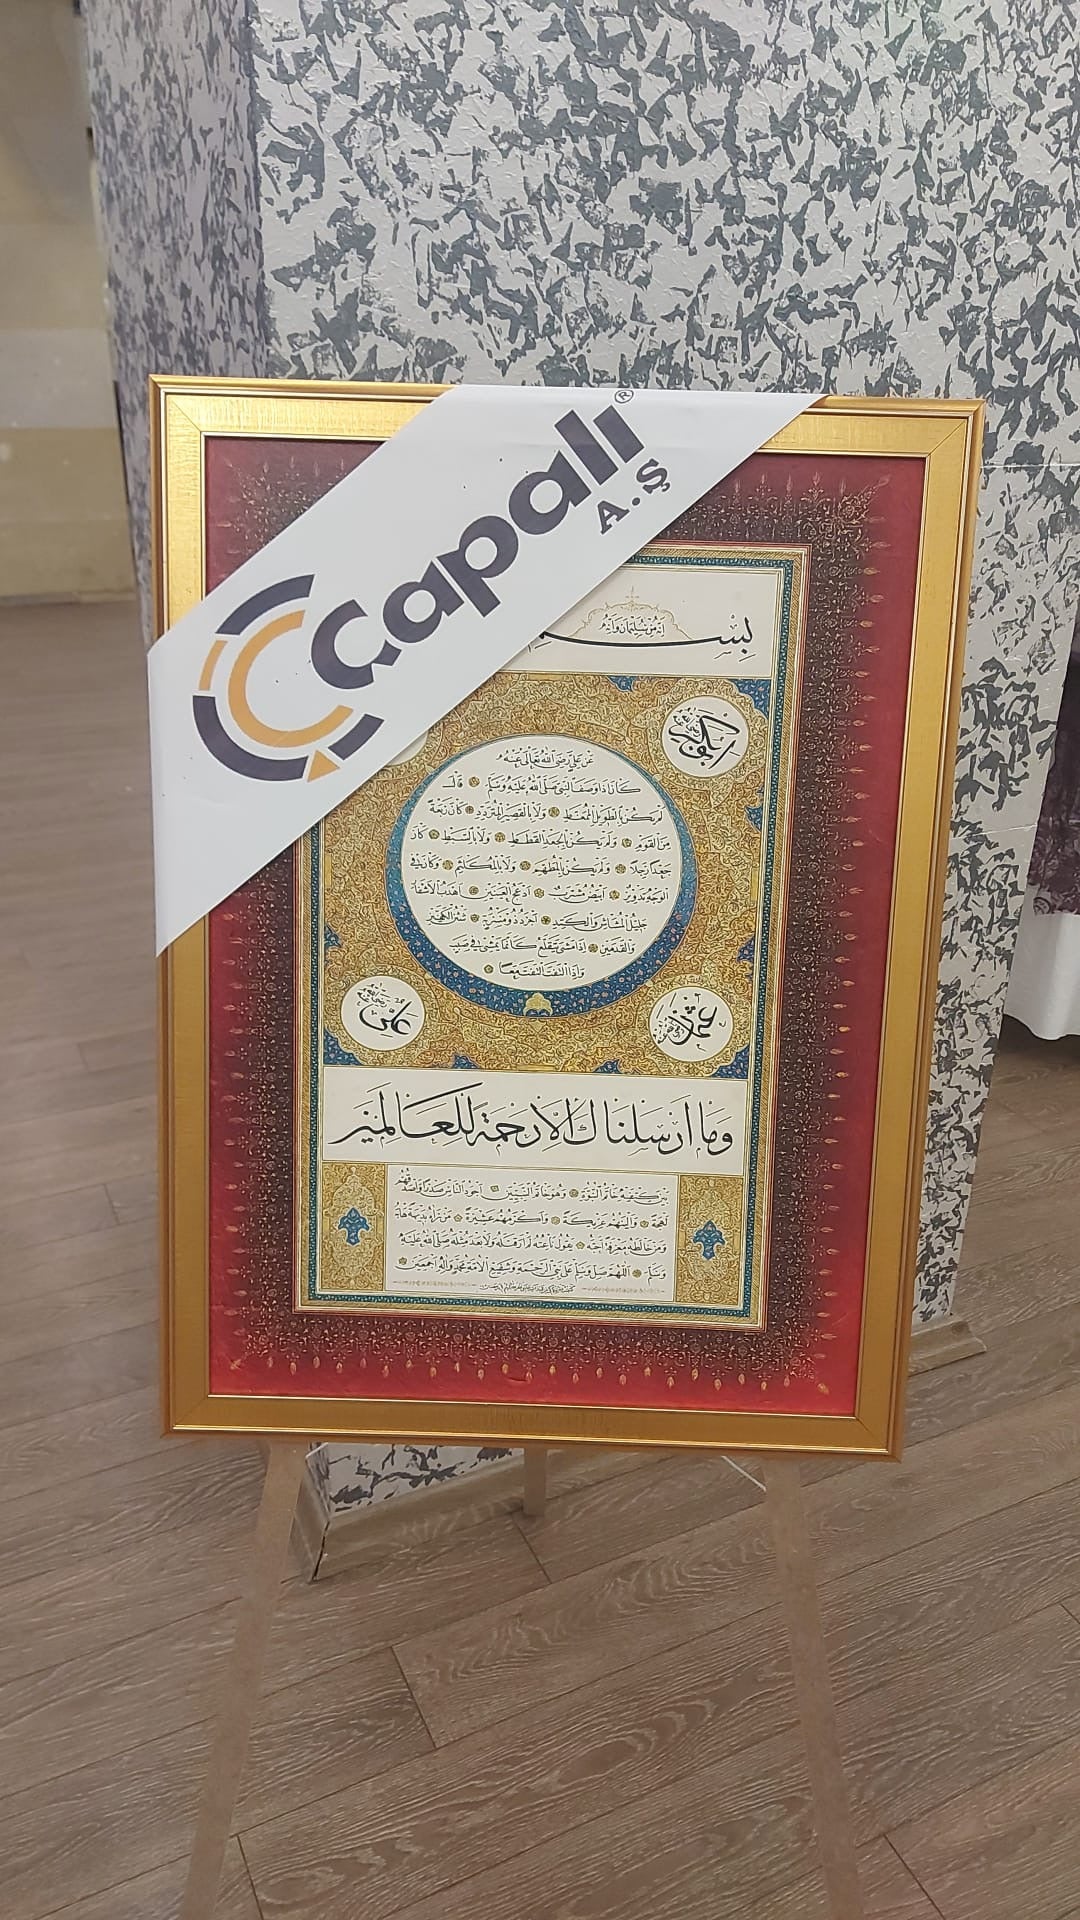 Çapalı®
A.Ş
انه من سليمان وانه
بِسـمِ
ابو بكر
عن علي رضي الله تعالى عنه
كان اذا وصف النبي صلى الله عليه وسلم قال
لم يكن بالطويل الممغط ولا بالقصير المتردد كان ربعة
من القوم ولم يكن بالجعد القطط ولا بالسبط كان
جعدا رجلا ولم يكن بالمطهم ولا بالمكلثم وكان في
الوجه تدوير ابيض مشرب ادعج العينين اهدب الاشفار
جليل المشاش والكتد اجرد ذو مسربة شثن الكفين
والقدمين اذا مشى تقلع كانما يمشي في صبب
واذا التفت التفت معا
عمر
علي
وما ارسلناك الا رحمة للعالمين
بين كتفيه خاتم النبوة وهو خاتم النبيين اجود الناس صدرا واصدقهم
لهجة والينهم عريكة واكرمهم عشيرة من رآه بديهة هابه
ومن خالطه معرفة احبه يقول ناعته لم ار قبله ولا بعده مثله صلى الله عليه
وسلم اللهم صل وسلم على نبي الرحمة وشفيع الامة محمد وآله اجمعين